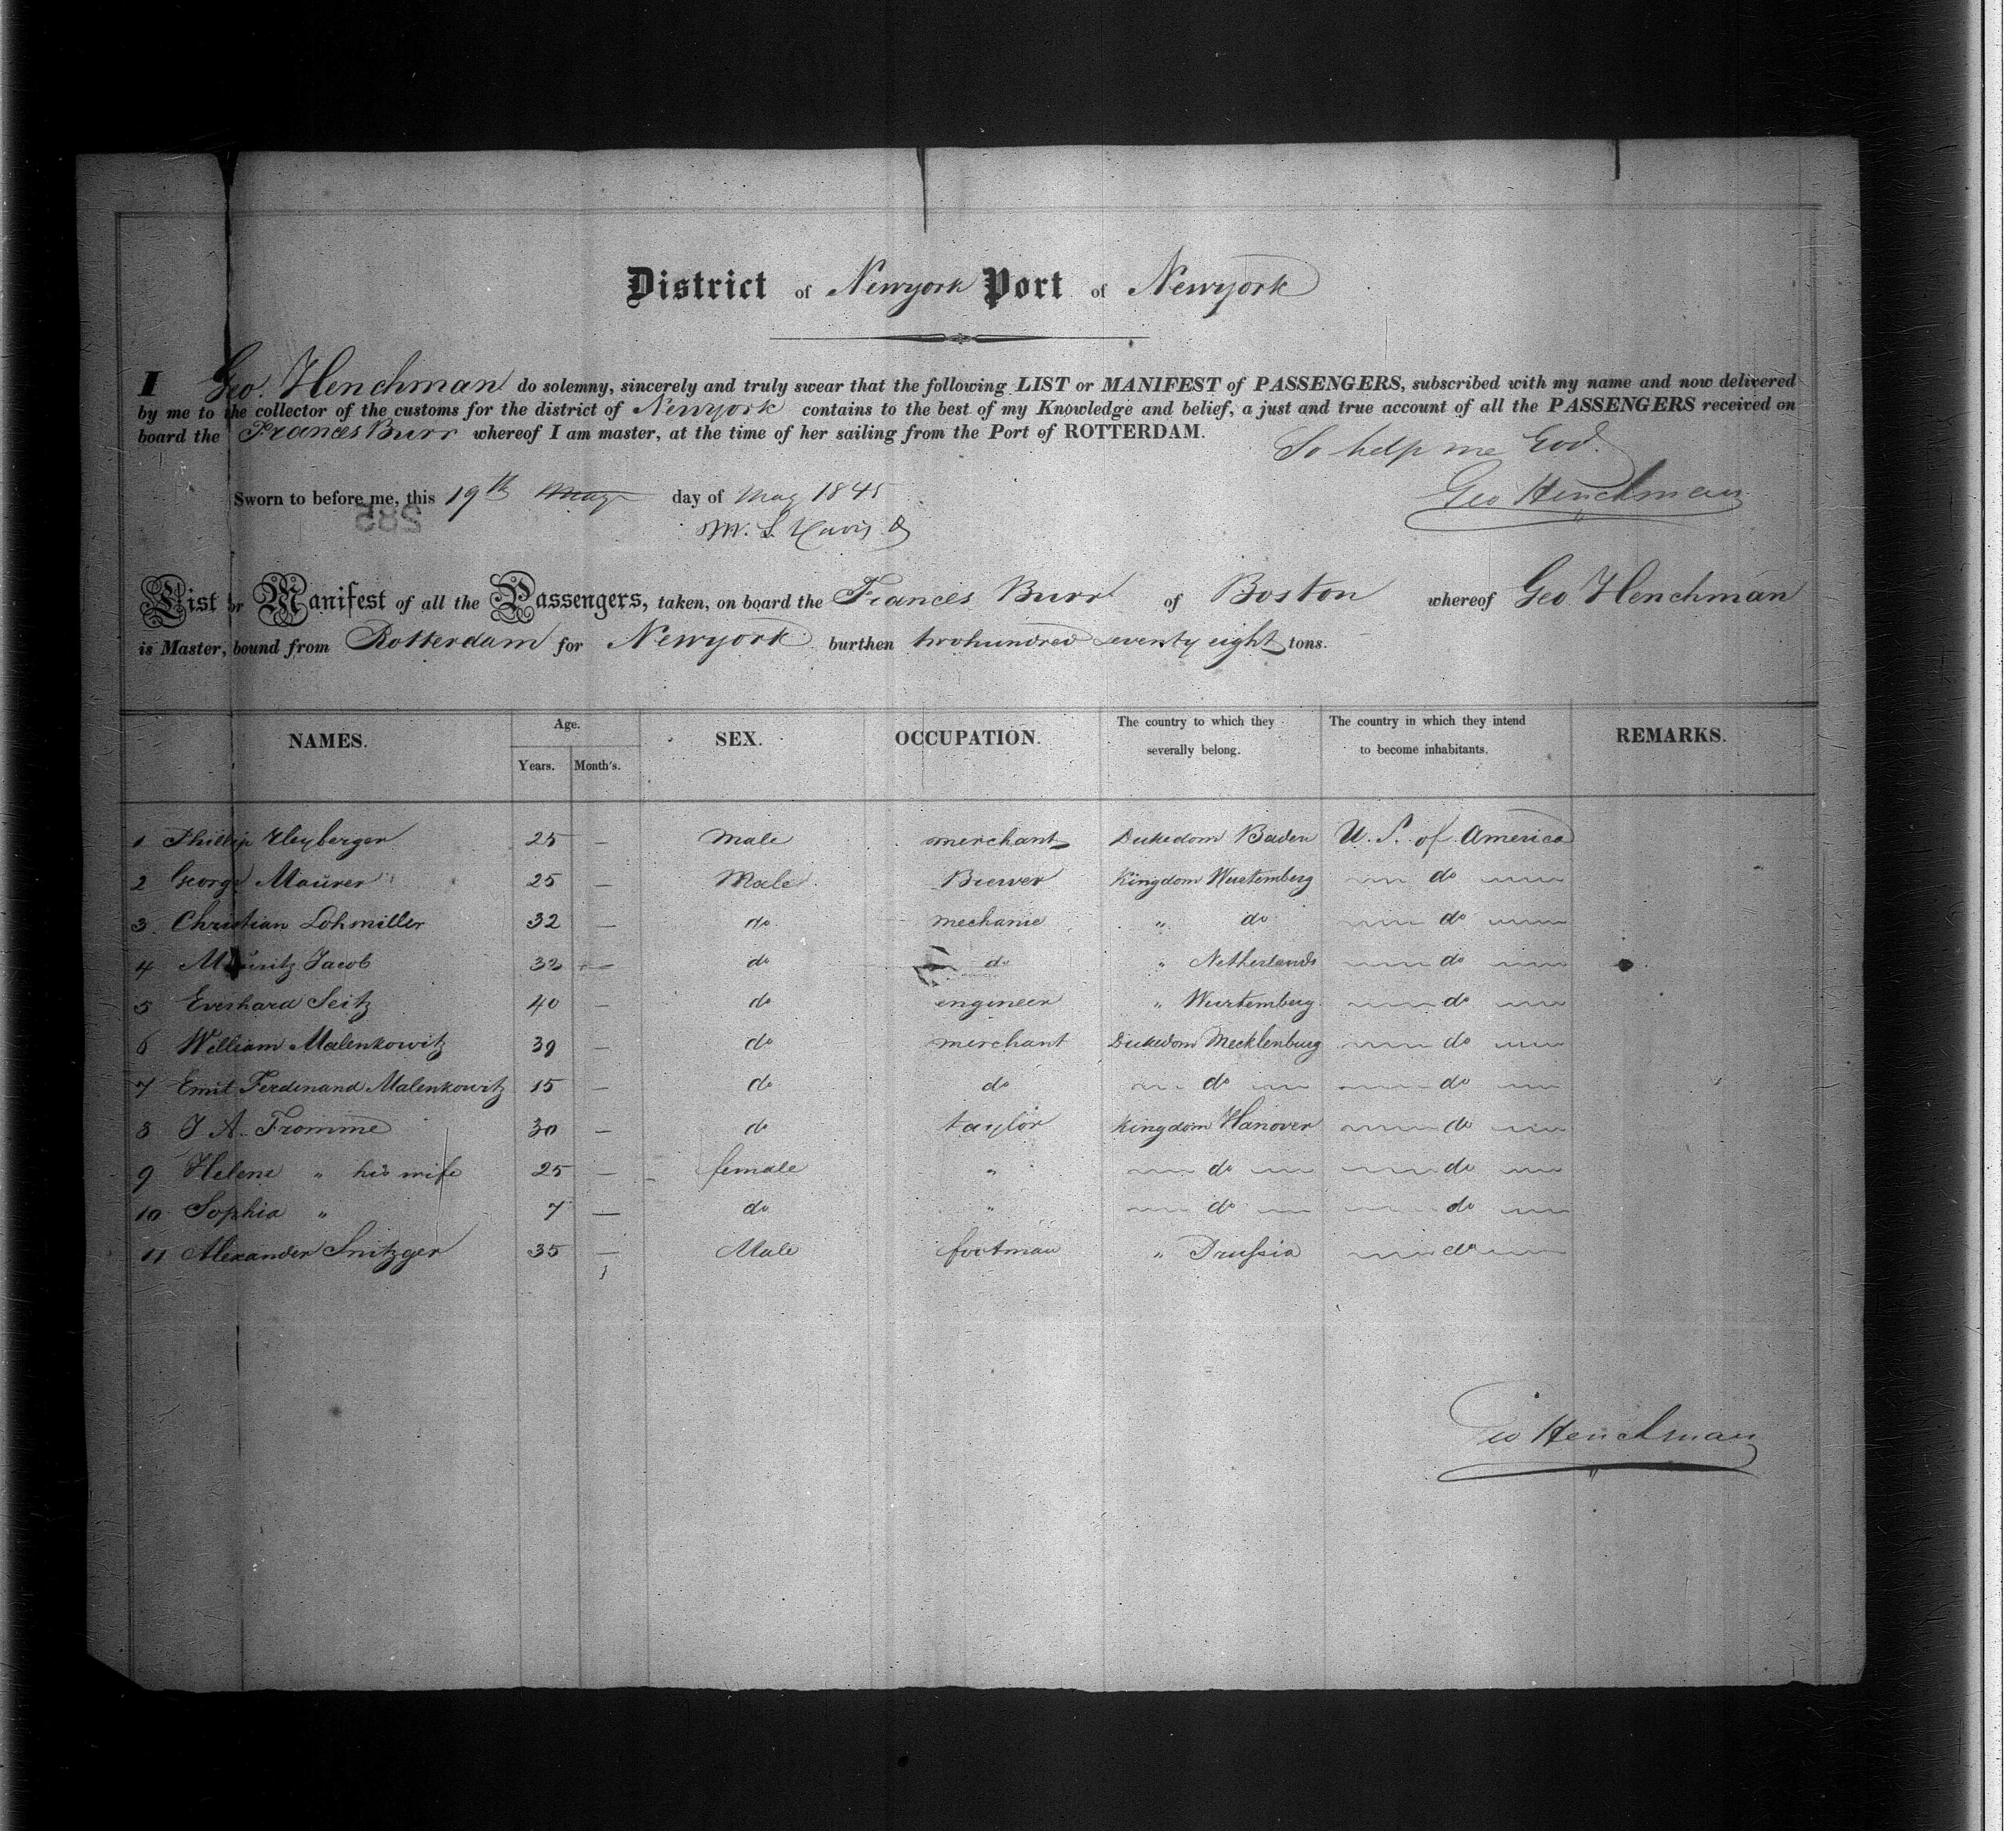 District of Newyork Port of Newyork
I Geo. Henchman do solemny, sincerely and truly swear that the following LIST or MANIFEST of PASSENGERS, subscribed with my name and now delivered
by me to the collector of the customs for the district of Newyork contains to the best of my Knowledge and belief, a just and true account of all the PASSENGERS received on
board the Frances Burr whereof I am master, at the time of her sailing from the Port of ROTTERDAM.
So help me God.
Geo Henchman
Sworn to before me, this 19th May day of May 1845
282
M. L. Davis
List or Manifest of all the Passengers, taken, on board the Frances Burr of Boston whereof Geo. Henchman
is Master, bound from Rotterdam for Newyork burthen twohundred seventy eight tons.
NAMES. Age. Years. Month's. SEX. OCCUPATION. The country to which they severally belong. The country in which they intend to become inhabitants. REMARKS.
1 Phillip Heyberger 25 — Male merchant Dukedom Baden U. S. of America
2 George Maurer 25 — Male Brewer Kingdom Wurtemberg do
3 Christian Lohmiller 32 — do mechanic " do do
4 Mauritz Jacob 32 — do do " Netherlands do
5 Evershard Seitz 40 — do engineer " Wurtemberg do
6 William Malenkowitz 39 — do merchant Dukedom Mecklenburg do
7 Emil Ferdinand Malenkowitz 15 — do do do do
8 J. A. Fromme 30 — do taylor Kingdom Hanover do
9 Helene " his wife 25 — female " do do
10 Sophia " 7 — do " do do
11 Alexander Snitzger 35 — Male footman " Prussia do
Geo Henchman